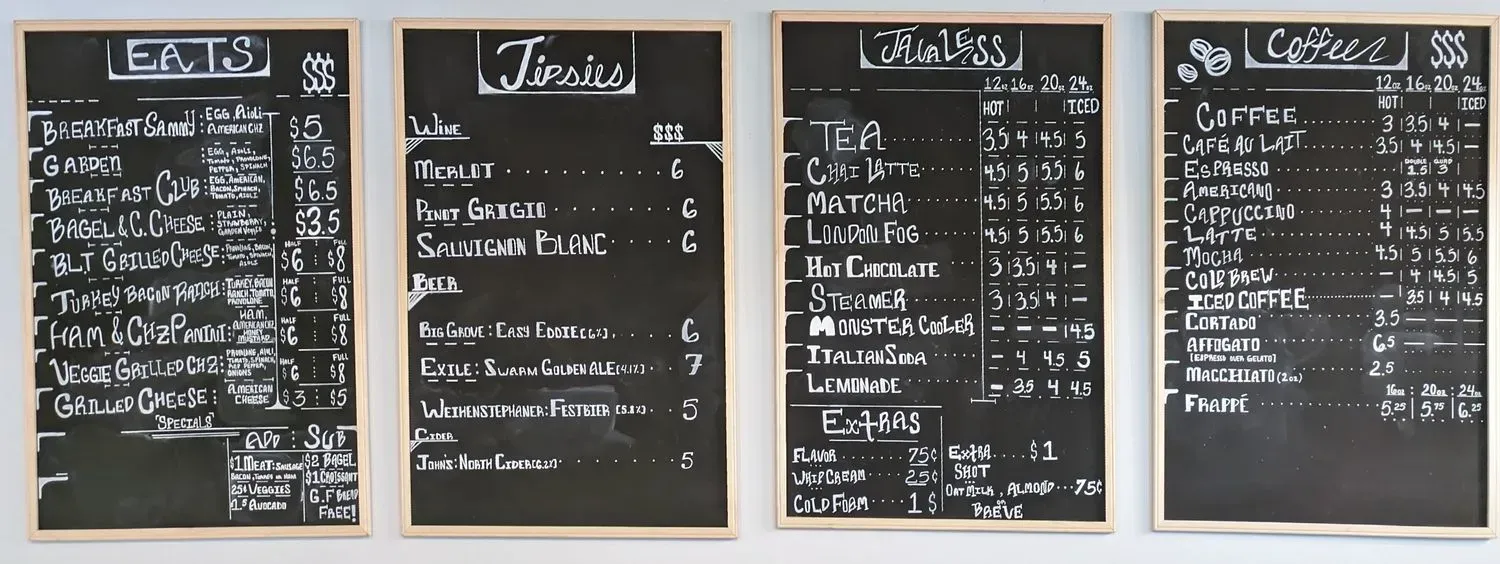 EATS
$$$
BREAKFAST SAMMY: EGG, AIOLI AMERICAN CHZ $5
GARDEN : EGG, AIOLI, TOMATO, PROVOLONE, PEPPER, SPINACH $6.5
BREAKFAST CLUB: EGG, AMERICAN, BACON, SPINACH, TOMATO, AIOLI $6.5
BAGEL & C. CHEESE: PLAIN, STRAWBERRY, GARDEN VEGGIE $3.5
HALF FULL
BLT GRILLED CHEESE: PROVOLONE, BACON, TOMATO, SPINACH, AIOLI $6 : $8
HALF FULL
TURKEY BACON RANCH: TURKEY, BACON RANCH, TOMATO, PROVOLONE $6 : $8
HALF FULL
HAM & CHZ PANINI: HAM, AMERICAN CHZ, HONEY MUSTARD $6 : $8
HALF FULL
VEGGIE GRILLED CHZ: PROVOLONE, AIOLI, TOMATO, SPINACH, RED PEPPER, ONIONS $6 : $8
GRILLED CHEESE: AMERICAN CHEESE $3 : $5
"SPECIALS"
ADD : SUB
$1 MEAT: SAUSAGE BACON, TURKEY OR HAM
25¢ VEGGIES
1.5 AVOCADO
$2 BAGEL
$1 CROISSANT
G.F BREAD FREE!
Tipsies
WINE $$$
MERLOT 6
PINOT GRIGIO 6
SAUVIGNON BLANC 6
BEER
BIG GROVE: EASY EDDIE [6.%] 6
EXILE: SWARM GOLDEN ALE [4.1%] 7
WEIHENSTEPHANER: FESTBIER [5.8%] 5
CIDER
JOHN'S: NORTH CIDER [6.2%] 5
JAVALESS
12oz 16oz 20oz 24oz
HOT | | | ICED
TEA 3.5 | 4 | 4.5 | 5
CHAI LATTE 4.5 | 5 | 5.5 | 6
MATCHA 4.5 | 5 | 5.5 | 6
LONDON FOG 4.5 | 5 | 5.5 | 6
HOT CHOCOLATE 3 | 3.5 | 4 | –
STEAMER 3 | 3.5 | 4 | –
MONSTER COOLER – – – | 4.5
ITALIAN SODA – 4 4.5 5
LEMONADE – 3.5 4 4.5
EXTRAS
FLAVOR 75¢
WHIP CREAM 25¢
COLD FOAM 1 $
EXTRA SHOT $1
OAT MILK, ALMOND OR BREVE 75¢
Coffee
$$$
12oz 16oz 20oz 24oz
HOT | | | ICED
COFFEE 3 | 3.5 | 4 | –
CAFÉ AU LAIT 3.5 | 4 | 4.5 | –
ESPRESSO DOUBLE 1.5 | QUAD 3
AMERICANO 3 | 3.5 | 4 | 4.5
CAPPUCCINO 4 | – | – | –
LATTE 4 | 4.5 | 5 | 5.5
MOCHA 4.5 | 5 | 5.5 | 6
COLD BREW – | 4 | 4.5 | 5
ICED COFFEE – | 3.5 | 4 | 4.5
CORTADO 3.5 – – –
AFFOGATO 6.5 – – –
[ESPRESSO OVER GELATO]
MACCHIATO (2oz) 2.5
16oz : 20oz : 24oz
FRAPPÉ 5.25 | 5.75 | 6.25